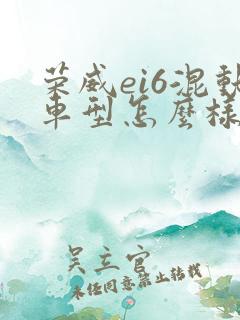 荣威ei6混動
車型怎麼樣
吴主官
未任同意禁止转载